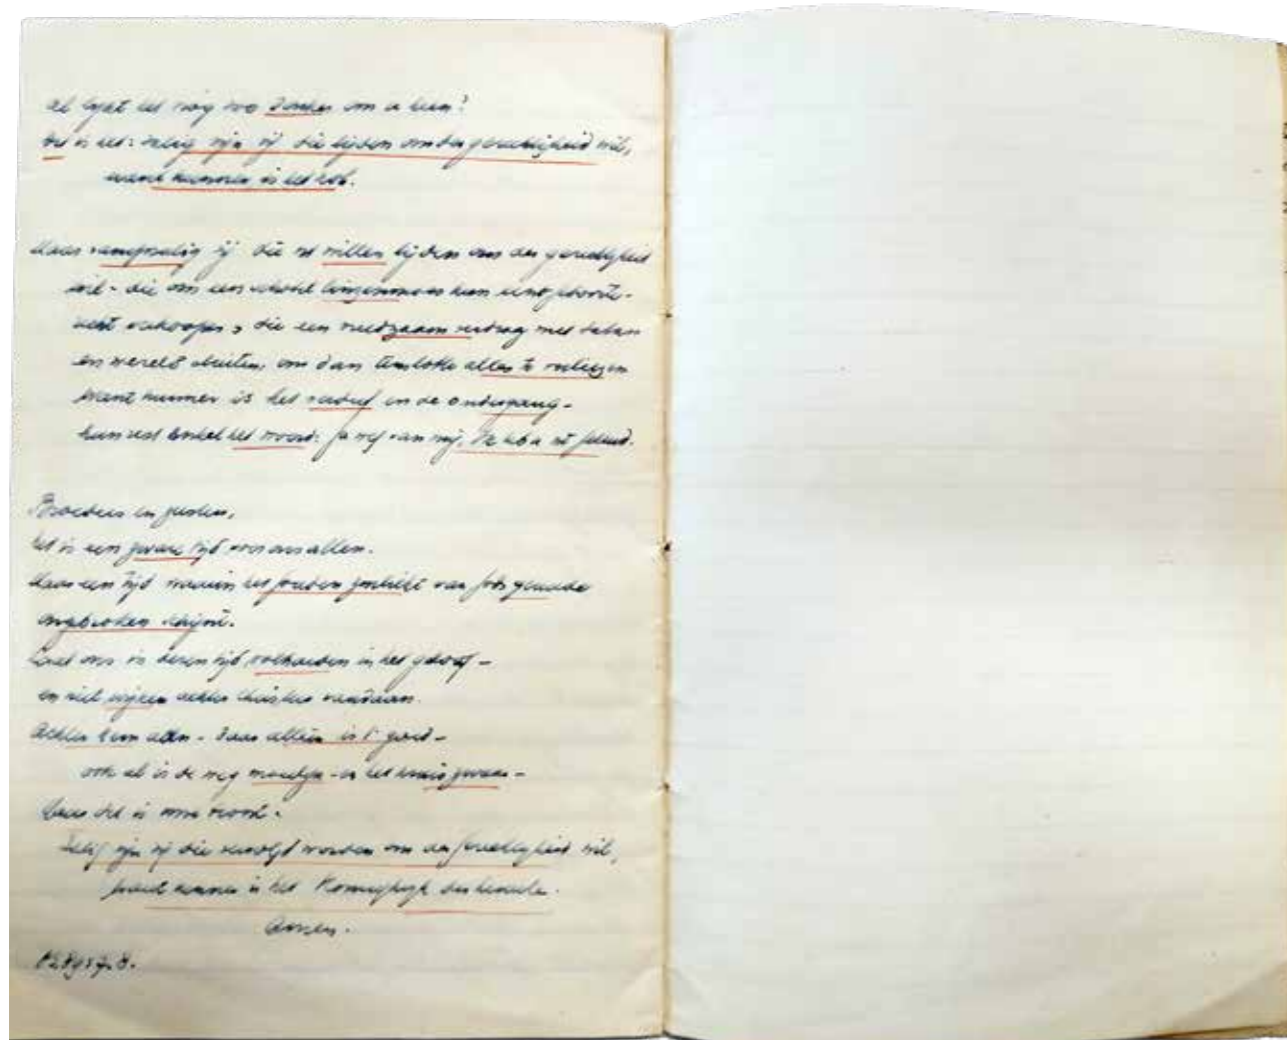 al lijkt het nog zoo donker om u heen?
Dit is het: zalig zijn zij die lijden om der gerechtigheid wil,
want hunner is het
Maar rampzalig zij die niet willen lijden om der gerechtigheid
wil - die om een schotel linzenmoes hun eerstgeboorte-
recht verkoopen, die een vreedzaam verdrag met satan
en wereld sluiten, om dan tenslotte alles te verliezen
want hunner is het verderf en de ondergang -
hun rest enkel het woord: Ga weg van mij, Ik heb u niet gekend.
Broeders en zusters,
het is een zware tijd voor ons allen.
Maar een tijd waarin het gouden zonlicht van Gods genade
ongebroken schijnt.
Laat ons in dezen tijd volharden in het geloof -
en niet wijken achter Christus vandaan.
Achter Hem aan - daar alleen is 't goed -
ook al is de weg moeilijk - en het kruis zwaar -
want dit is ons troost -
Zalig zijn zij die vervolgd worden om der gerechtigheid wil,
want hunner is het Koninkrijk der hemelen.
Amen.